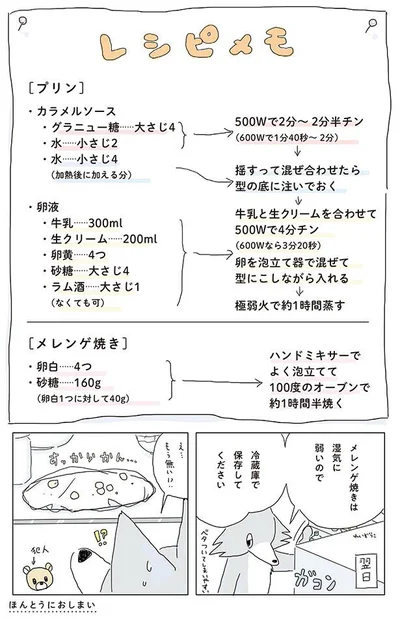 レシピメモ
［プリン］
・カラメルソース
・グラニュー糖……大さじ4
・水……小さじ2
・水……小さじ4
（加熱後に加える分）
500Wで2分〜2分半チン
（600Wで1分40秒〜2分）
揺すって混ぜ合わせたら
型の底に注いでおく
・卵液
・牛乳……300ml
・生クリーム……200ml
・卵黄……4つ
・砂糖……大さじ4
・ラム酒……大さじ1
（なくても可）
牛乳と生クリームを合わせて
500Wで4分チン
（600Wなら3分20秒）
卵を泡立て器で混ぜて
型にこしながら入れる
極弱火で約1時間蒸す
［メレンゲ焼き］
・卵白……4つ
・砂糖……160g
（卵白1つに対して40g）
ハンドミキサーで
よく泡立てて
100度のオーブンで
約1時間半焼く
翌日
れいぞうこ
ガコン
メレンゲ焼きは
湿気に
弱いので
冷蔵庫で
保存して
ください
ベタついてしまいやすい
え…
もう無い!?…
すっかりかん…
!?
犯人
ほんとうにおしまい